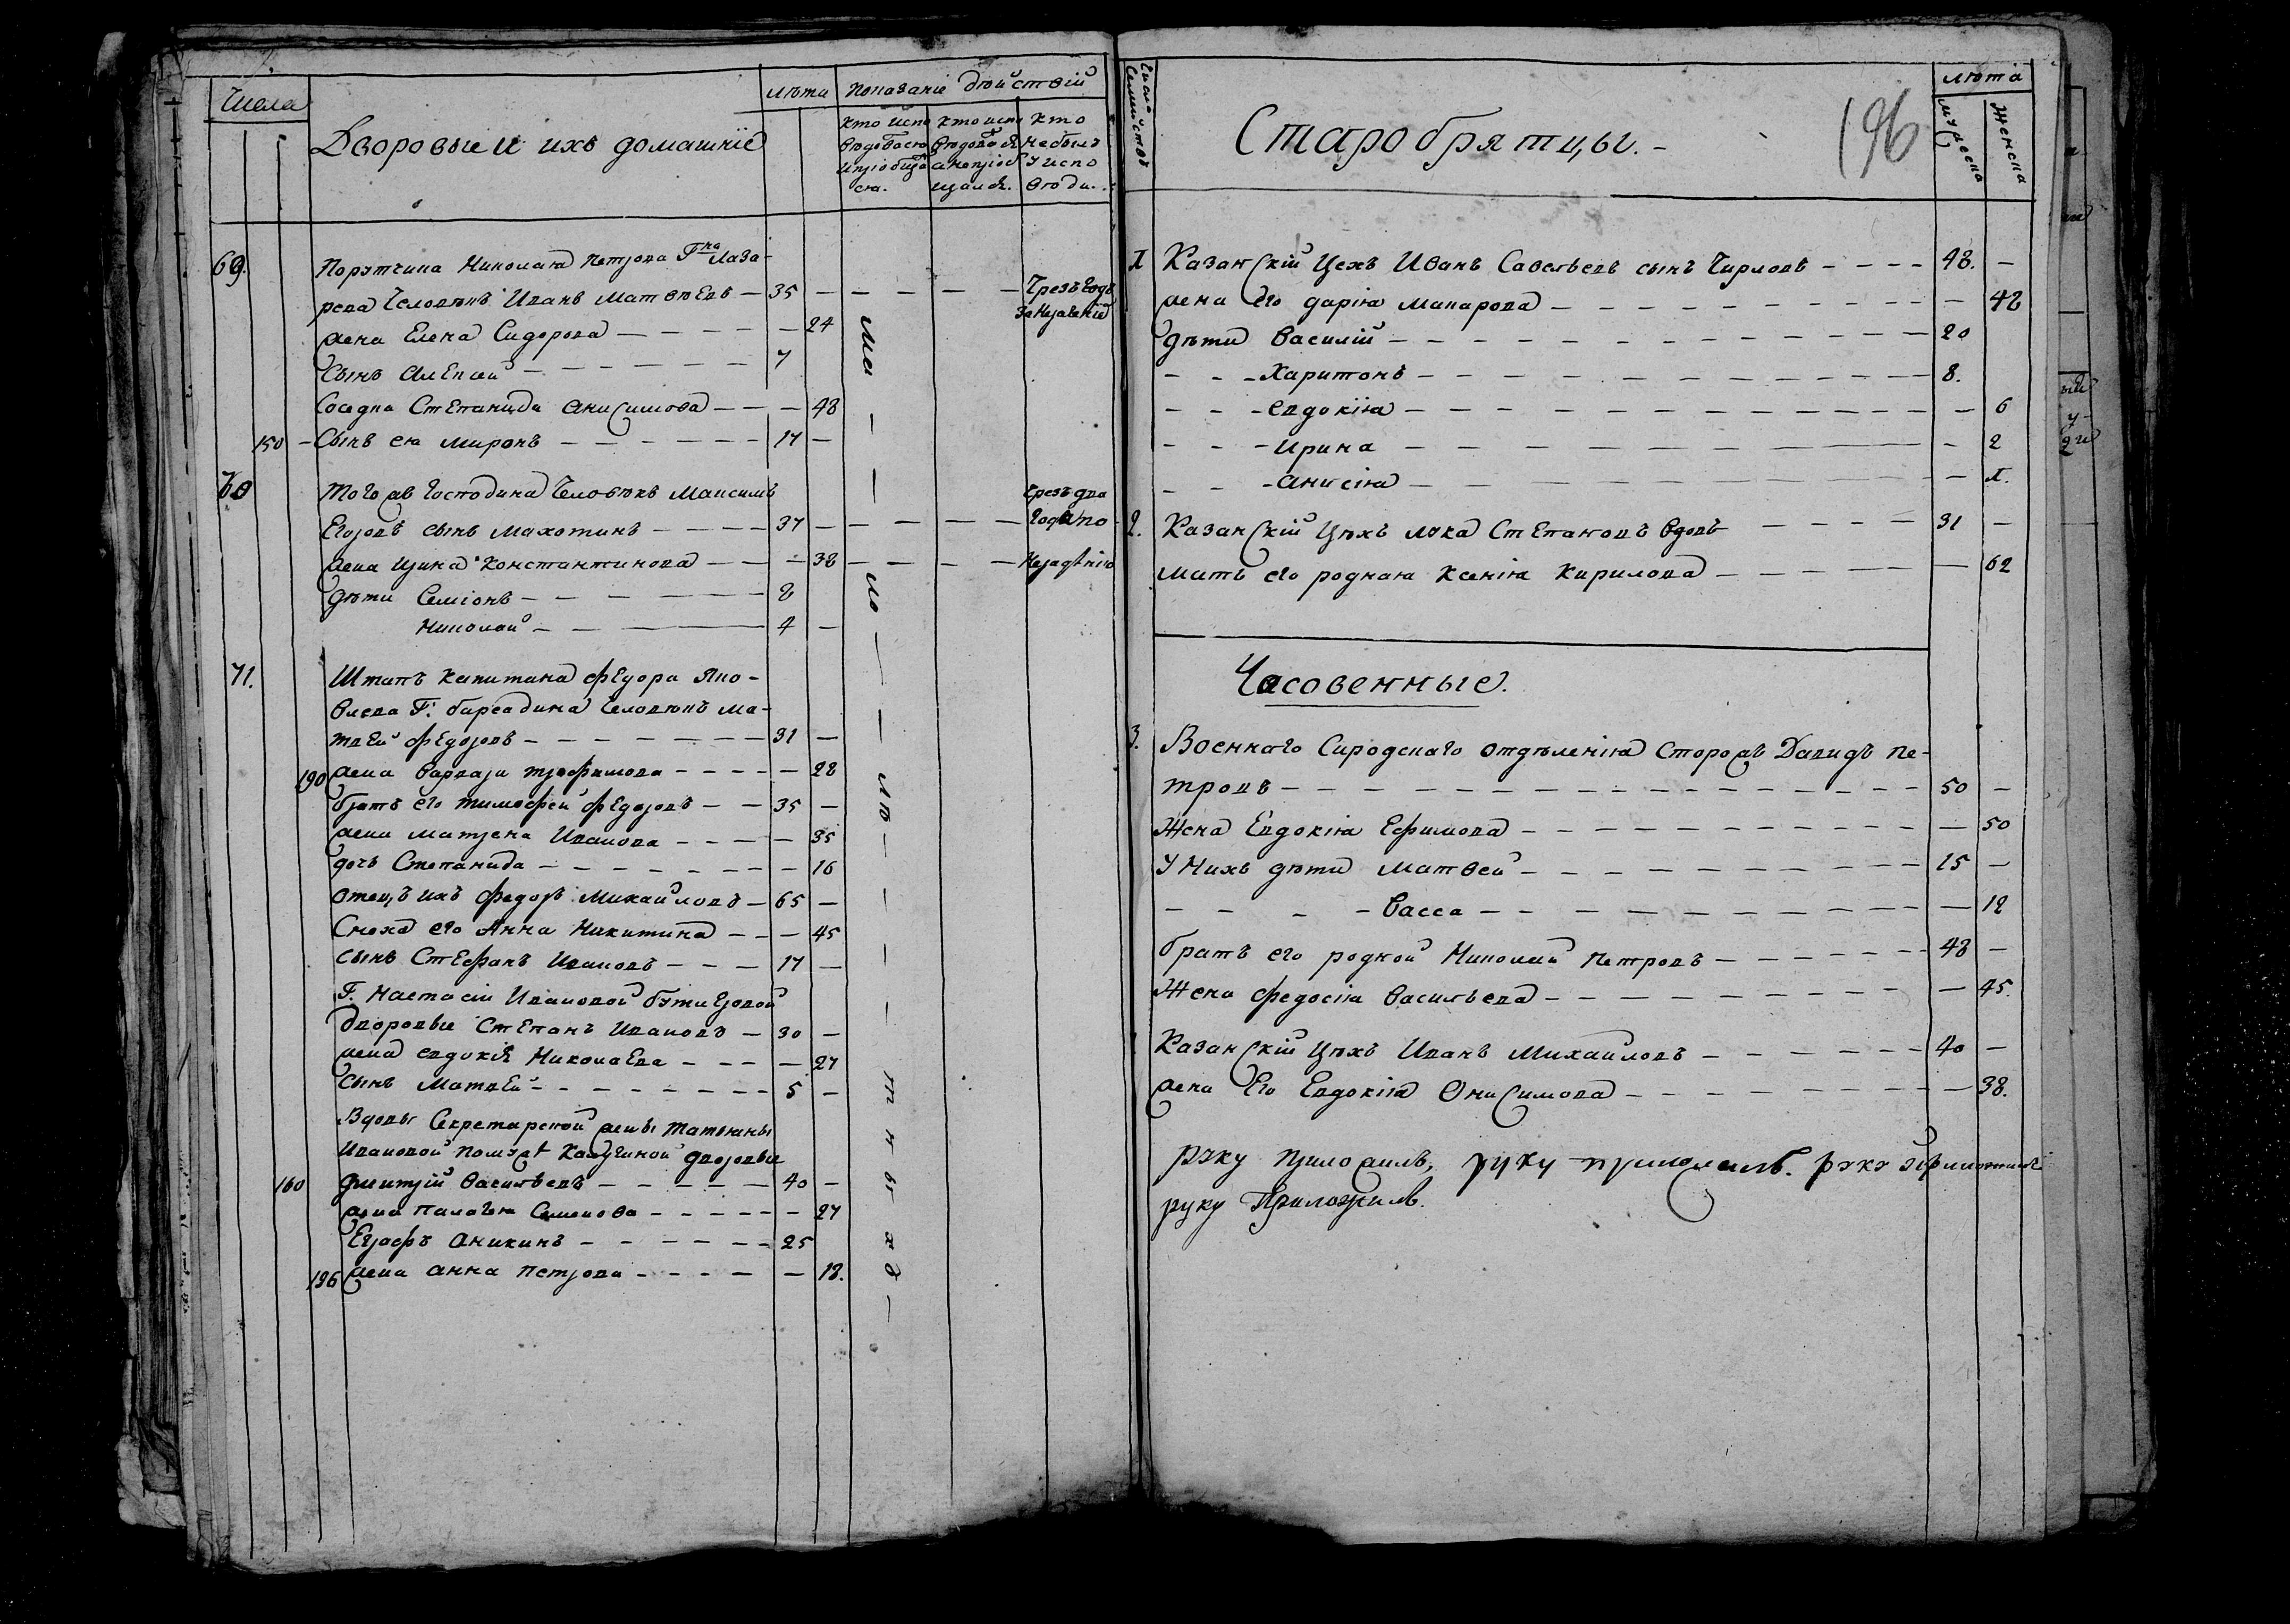 Числа
Дворовые и ихъ домашнїе
лѣта
Показанїе дѣйствїй
кто испо
вѣдовася
и прїобща
ся.
кто испо
вѣдовася
а непрїоб
щался.
кто
не былъ
у испо
вѣди.
69. Порутчика Николая Петрова Г-на Лаза-
рева Человѣкъ Иванъ Матвѣевъ — 35 — — — — — Чрезъ годъ
за нерадѣнїем
жена Елена Сидорова — — — — — 24
сынъ Алексѣй — — — — — — 7
Соседка Степанида Анисимова — — — 48
150 — Сынъ ея Миронъ — — — — — — 17 —
70 Того жъ Господина Человѣкъ Максимъ Чрезъ два
Егоровъ сынъ Махотинъ — — — — 37 — — — — — года по
жена Ирина Константинова — — — 38 — — — — нерадѣнїю
дѣти Семїонъ — — — — 8
Николай — — — 4 —
71. Штапъ капитана Федора Яко-
влева Г. Человѣкъ Ма-
твей Федоровъ — — — — — — — 31 —
190 жена Варвара Трофимова — — — — — 28
братъ его Тимофей Федоровъ — — 35 —
жена Матрена Иванова — — — — 35
дочь Степанида — — — — — — — — 16
отецъ ихъ Федоръ Михайловъ — 65 —
Сноха его Анна Никитина — — — 45
сынъ Стефанъ Ивановъ — — — 17 —
Г. Настасїи Ивановой
дворовые Степанъ Ивановъ — 30 —
жена Евдокїя Николаева — — — — 27
сынъ Матвей — — — — — — — — 5 —
Вдовы Секретарской жены Татьяны
Ивановой дворовые
160 Дмитрїй Васильевъ — — — — — 40 —
жена Палагѣя Семенова — — — — — — 27
Ерафъ Аникинъ — — — — — — 25
196 жена Анна Петрова — — — — — 18.
Число
Семействъ
Старобрятцы. —
196
лѣта
мужеска
женска
1 Казанскїй Цехъ Иванъ Савельевъ сынъ Чирловъ — — — — 48. —
жена его Дарїя Макарова — — — — — — — — — — — 42
дѣти Василїй — — — — — — — — — — — — 20
— — — Харитонъ — — — — — — — — — — — — 8.
— — — Евдокїя — — — — — — — — — — — — — 6
— — — Ирина — — — — — — — 2
— — — Анисїя — — — — — — — 1.
2. Казанскїй Цѣхъ Лука Степановъ вдовъ — — — — 31 —
мать его родная Ксенїя Кирилова — — — — — — 62
Часовенные.
3. Военнаго Сиродскаго отдѣленїя Сторожъ Давидъ Пе-
тровъ — — — — — — — — — — — — — — — 50 —
Жена Евдокїя Ефимова — — — — — — — — — — — 50
У Нихъ дѣти Матвей — — — — — — — — — 15 —
— — — — Васса — — — — — — — — — — — 12
братъ его родной Николай Петровъ — — — — — — 48 —
Жена Федосїя Васильева — — — — — — — — — — 45.
Казанскїй Цѣхъ Иванъ Михайловъ — — — — — — 40 —
жена Его Евдокїя Онисимова — — — — — — — — 38.
руку приложилъ, руку приложилъ. руку приложилъ
руку Приложилъ.